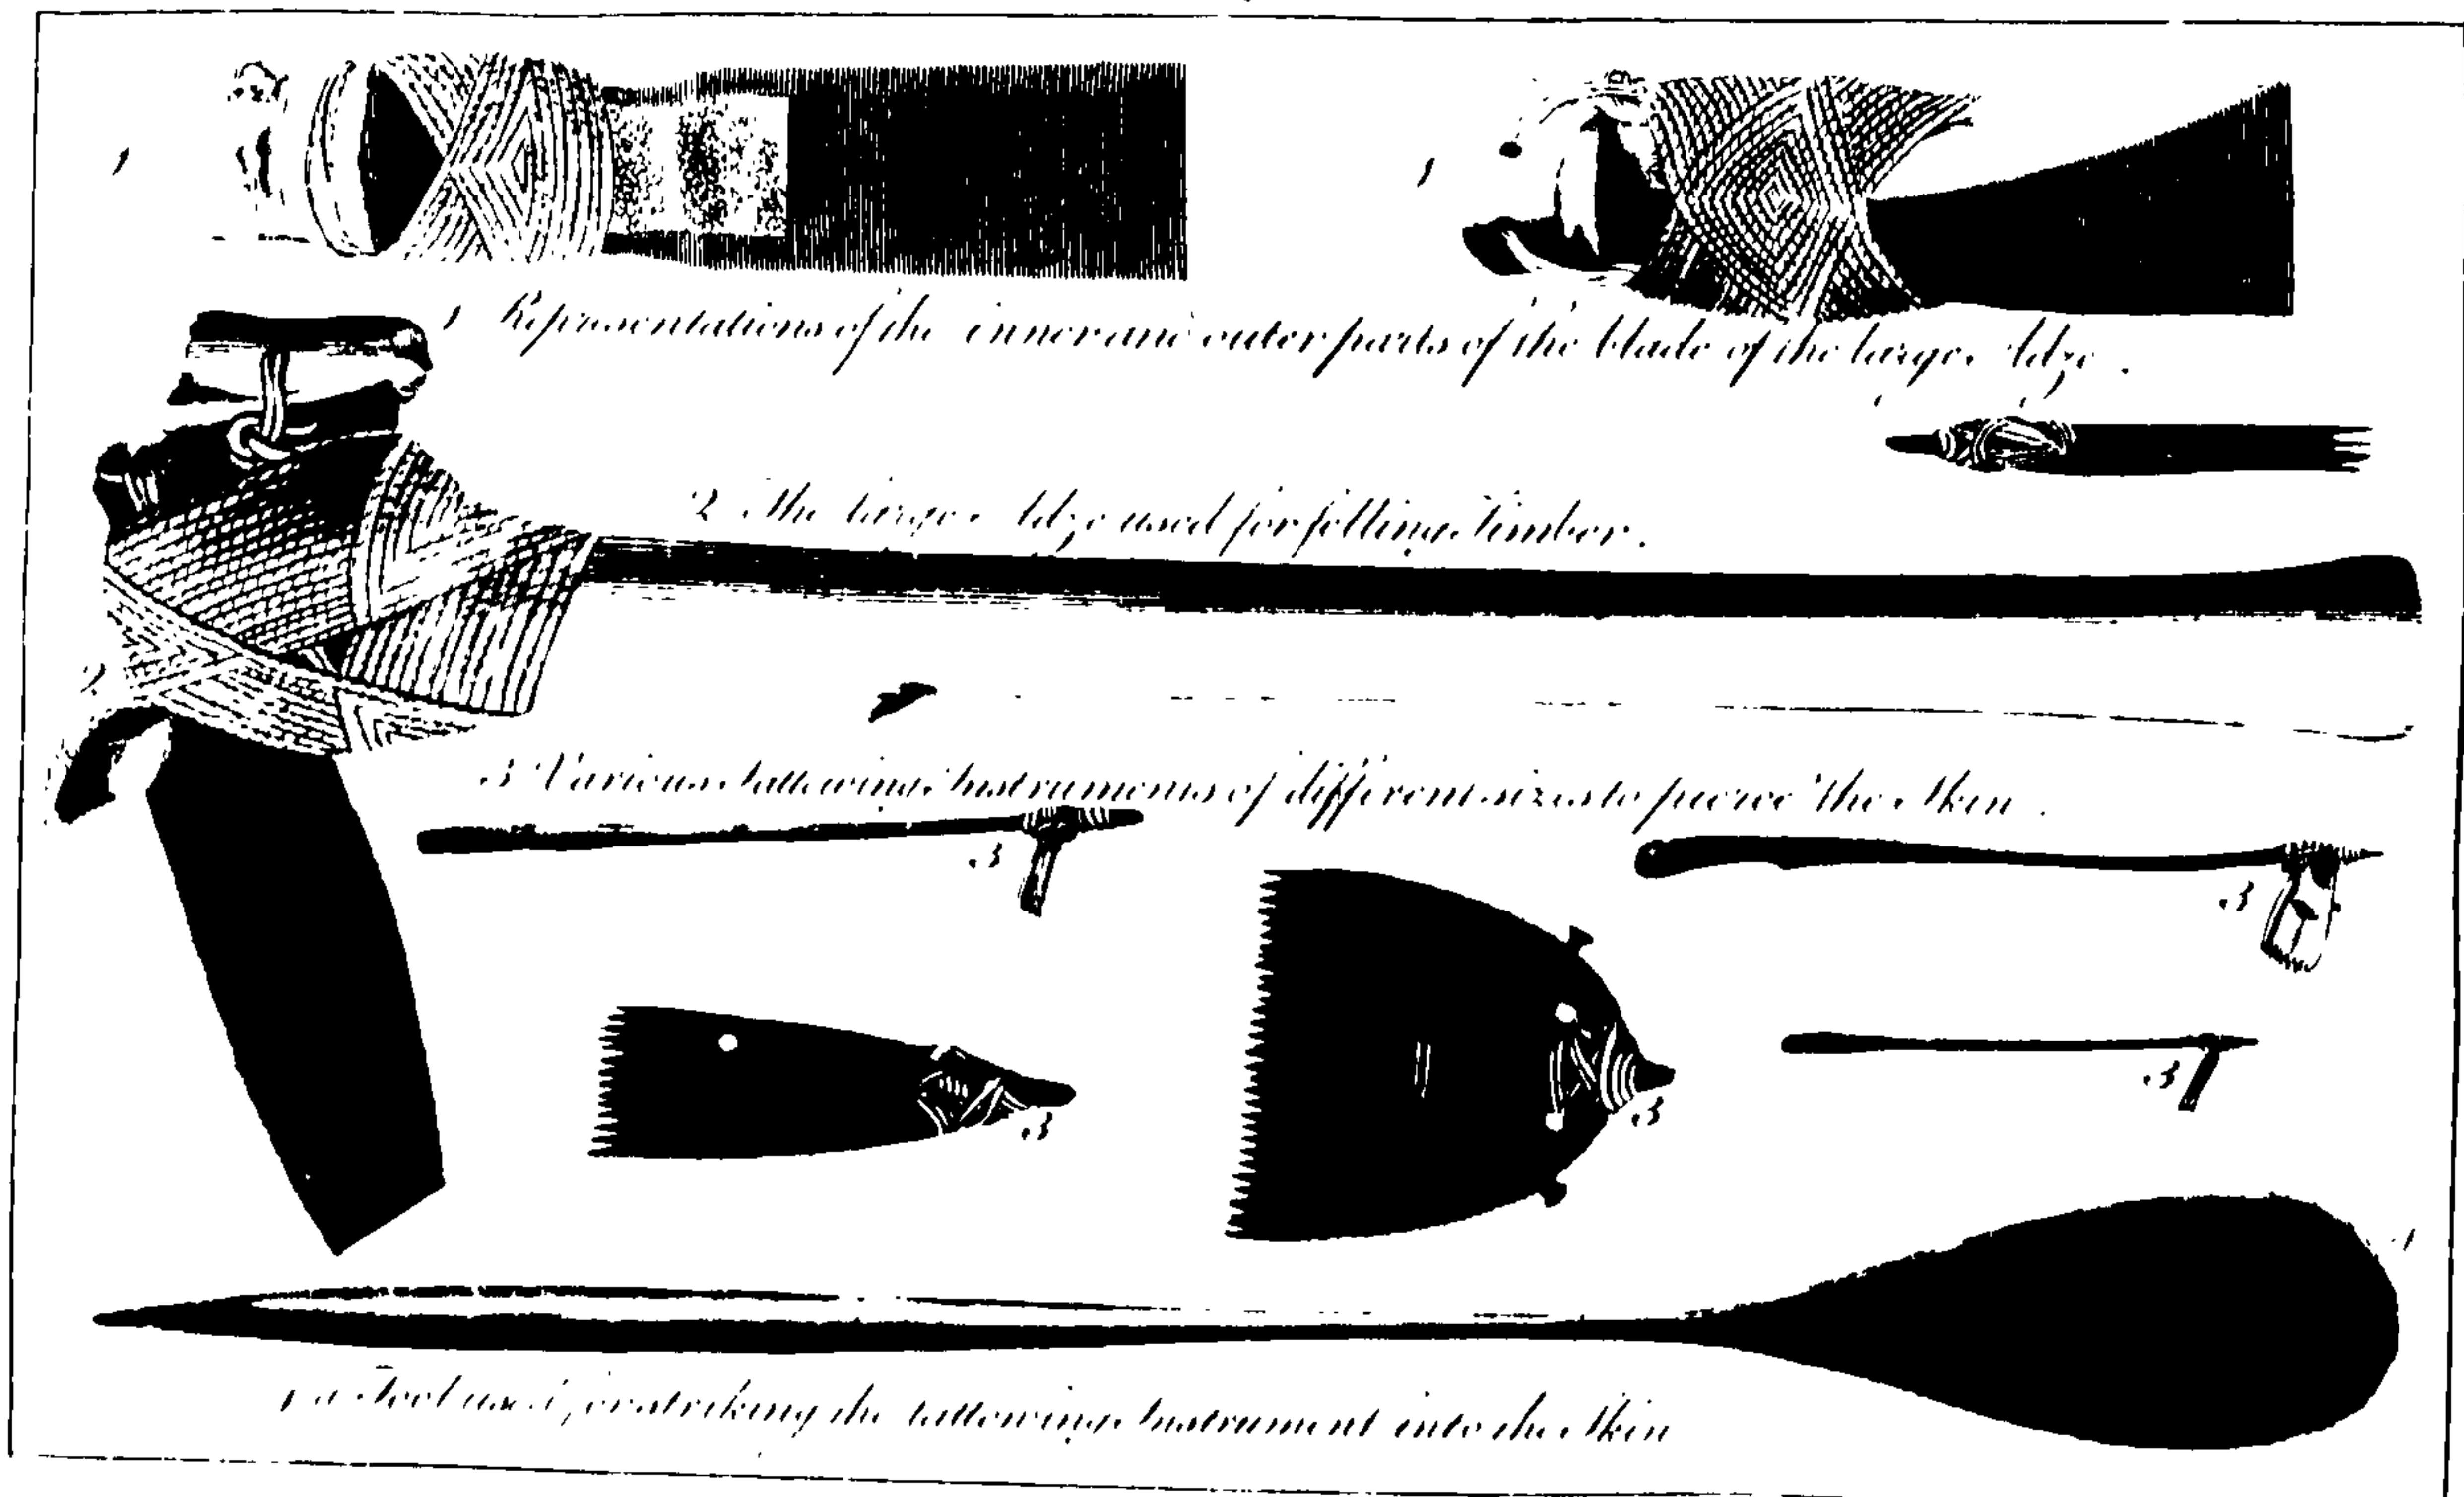 1 1
1 Representations of the inner and outer parts of the blade of the large Adze.
2 The large Adze used for felling Timber.
2
3 Various tattowing Instruments of different sizes to pierce the Skin.
3 3
3 3 3
a Tool used for striking the tattowing Instrument into the Skin